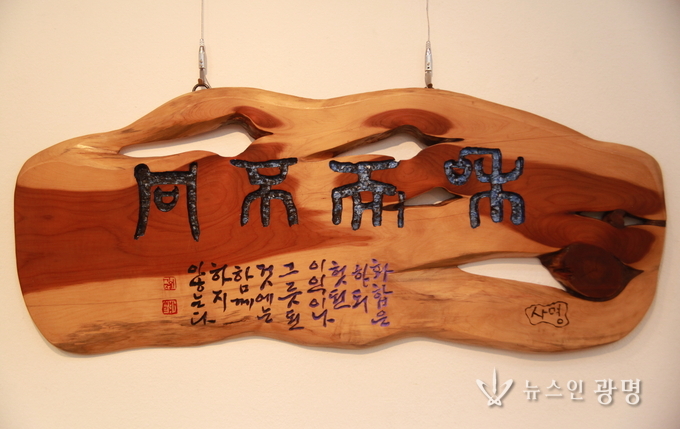 和而不同
화합은
하되
헛된
이익이나
그릇된
것에는
함께
하지
않는다
사명
뉴스인 광명